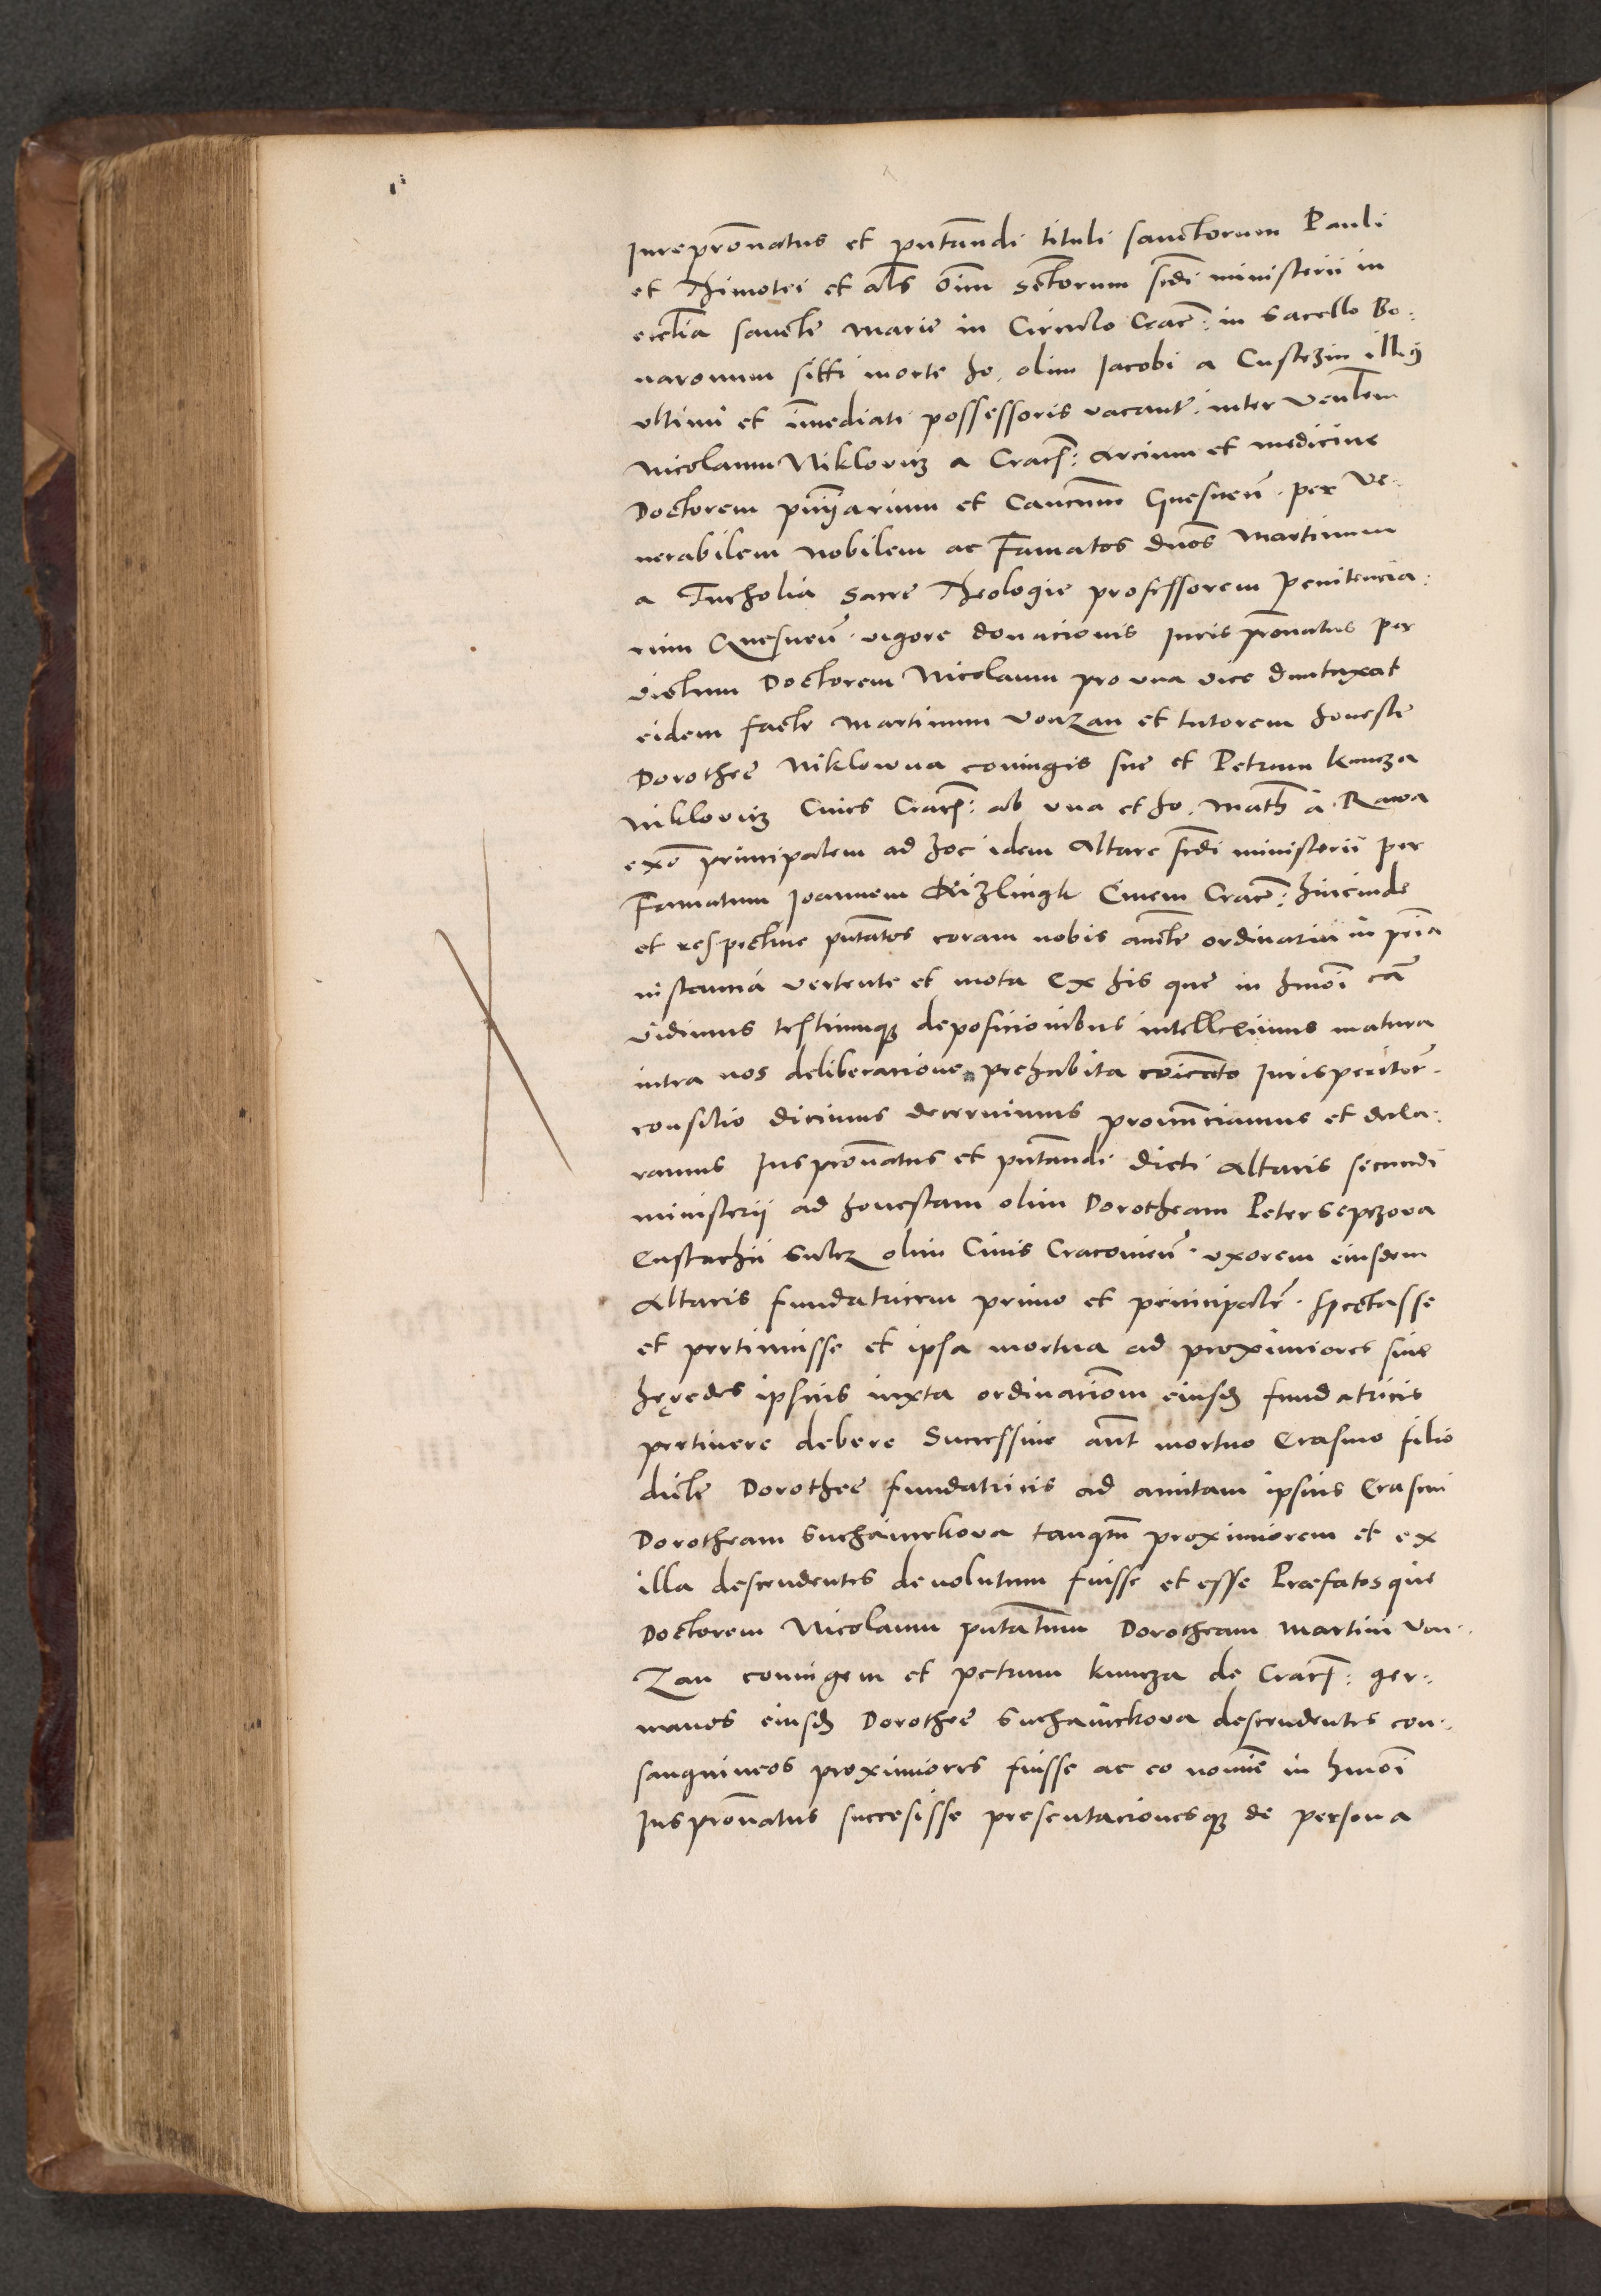 Iurepronatus et pntandi tituli sanctorum Pauli
et Thimotei et als oim Sctorum scdi ministerii in
ecclia sancte marie in Circulo Crac: in Sacello Bo:
naronum siti morte ho. olim Iacobi a Custrzin illiq
vltimi et imediati possessoris vacante. inter venlem
Nicolaum Niklovicz a Cracz: Arcium et medicine
Doctorem et Cancum Gnesnen. per Ve:
nerabilem Nobilem ac Famatos dnos Martinum
a Tucholia Sacre Theologie professorem Penitencia:
rium Gnesnen. vigore donacionis Iuris pronatus per
dictum Doctorem Nicolaum pro vna vice duntaxat
eidem facte Martinum Vonzan et tutorem honeste
Dorothee Niklowna coniugis sue et Petrum Kuncza
Niklovicz Cives Cracz: ab vna et ho. Math a Rawa
exo principalem ad hoc idem Altare scdi ministerii per
Famatum Ioannem Kizlingk Civem Crac: hincinde
et respective pntatos coram nobis aucte ordinaria in pria
instancia vertente et mota Ex his que in hmoi ca
vidimus testiumqz deposicionibus intelleximus matura
intra nos deliberacione prehabita coicato Iurisperitor.
consilio dicimus decernimus pronunciamus et decla:
ramus Iuspronatus et pntandi dicti Altaris secundi
ministerii ad honestam olim Dorotheam Petersepczova
Eustachii Sulcz olim Civis Cracovien. vxorem eiusdem
Altaris fundatricem primo et principale. spectasse
et pertinuisse et ipsa mortua ad proximiores sive
hęredes ipsius iuxta ordinacionem eiusd fundatricis
pertinere debere Successive aut mortuo Erasmo filio
dicte Dorothee fundatricis ad amitam ipsius Erasmi
Dorotheam Suchainckova tanqm proximiorem et ex
illa descendentes devolutum fuisse et esse Præfatosque
Doctorem Nicolaum pntatum Dorotheam Martini Von:
Zan coniugem et petrum kuncza de Cracz: ger:
manos eiusd Dorothee Suchainckova descendentes con:
sanguineos proximiores fuisse ac eo nomine in hmoi
Iuspronatus succesisse presentacionesqz de persona